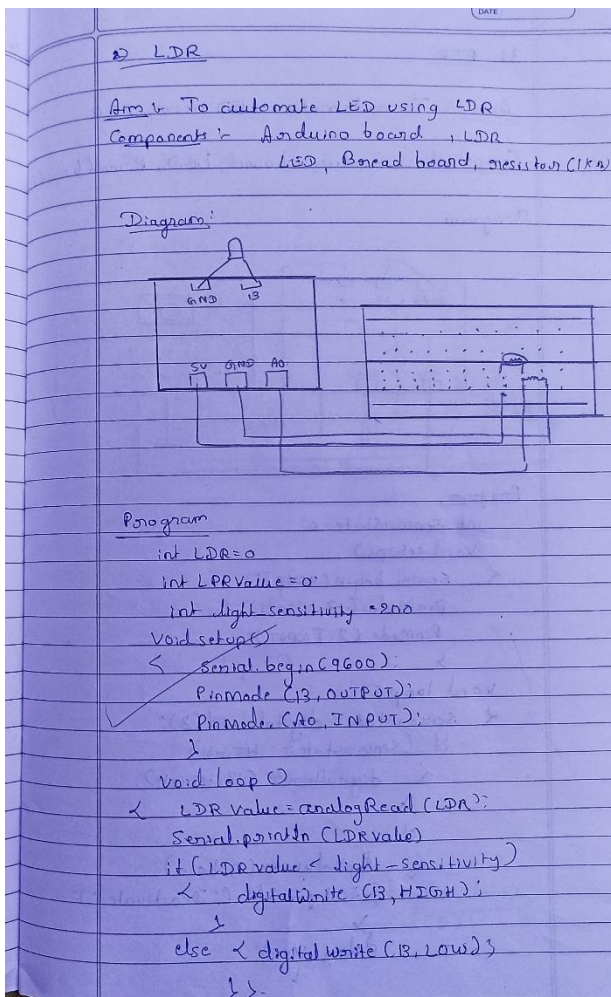 DATE
2) LDR
Aim :- To automate LED using LDR
Components :- Arduino board , LDR
LED, Bread board, resistor (1KΩ)
Diagram:
GND 13
5V GND A0
Program
int LDR=0
int LDRValue=0.
int light_sensitivity =200
Void setup()
{ Serial.begin(9600):
Pinmode (13, OUTPUT);
Pinmode, (A0, INPUT);
}
void loop ()
{ LDR value = analogRead (LDR);
Serial.println (LDRvalue)
if (LDR value < light-sensitivity)
{ digitalWrite (13, HIGH);
}
else { digital write (13, LOW);
} }.